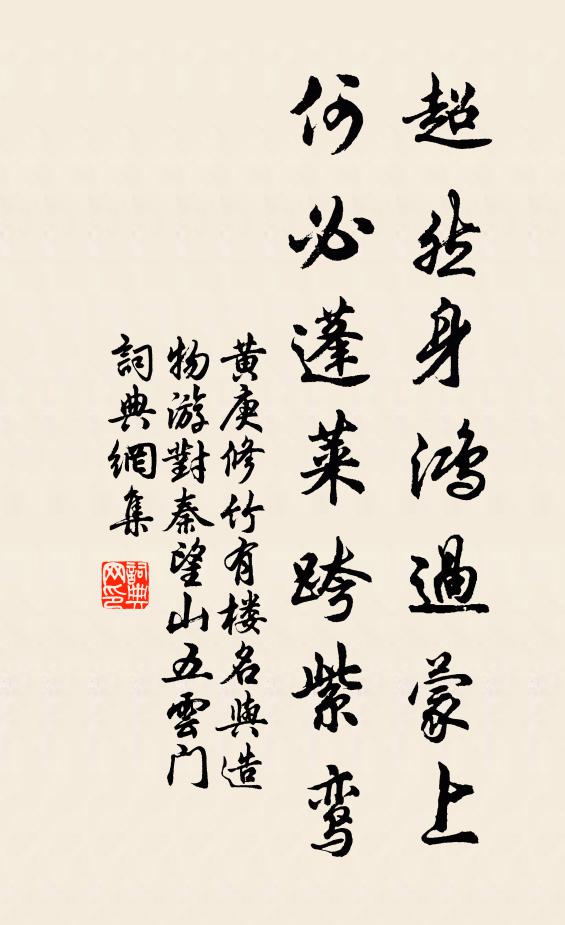 超然身鸿過蒙上
何必蓬萊跨紫鸾
黄庚修竹有楼名與造
物游對秦望山五雲门
詞典網集
詞典网印